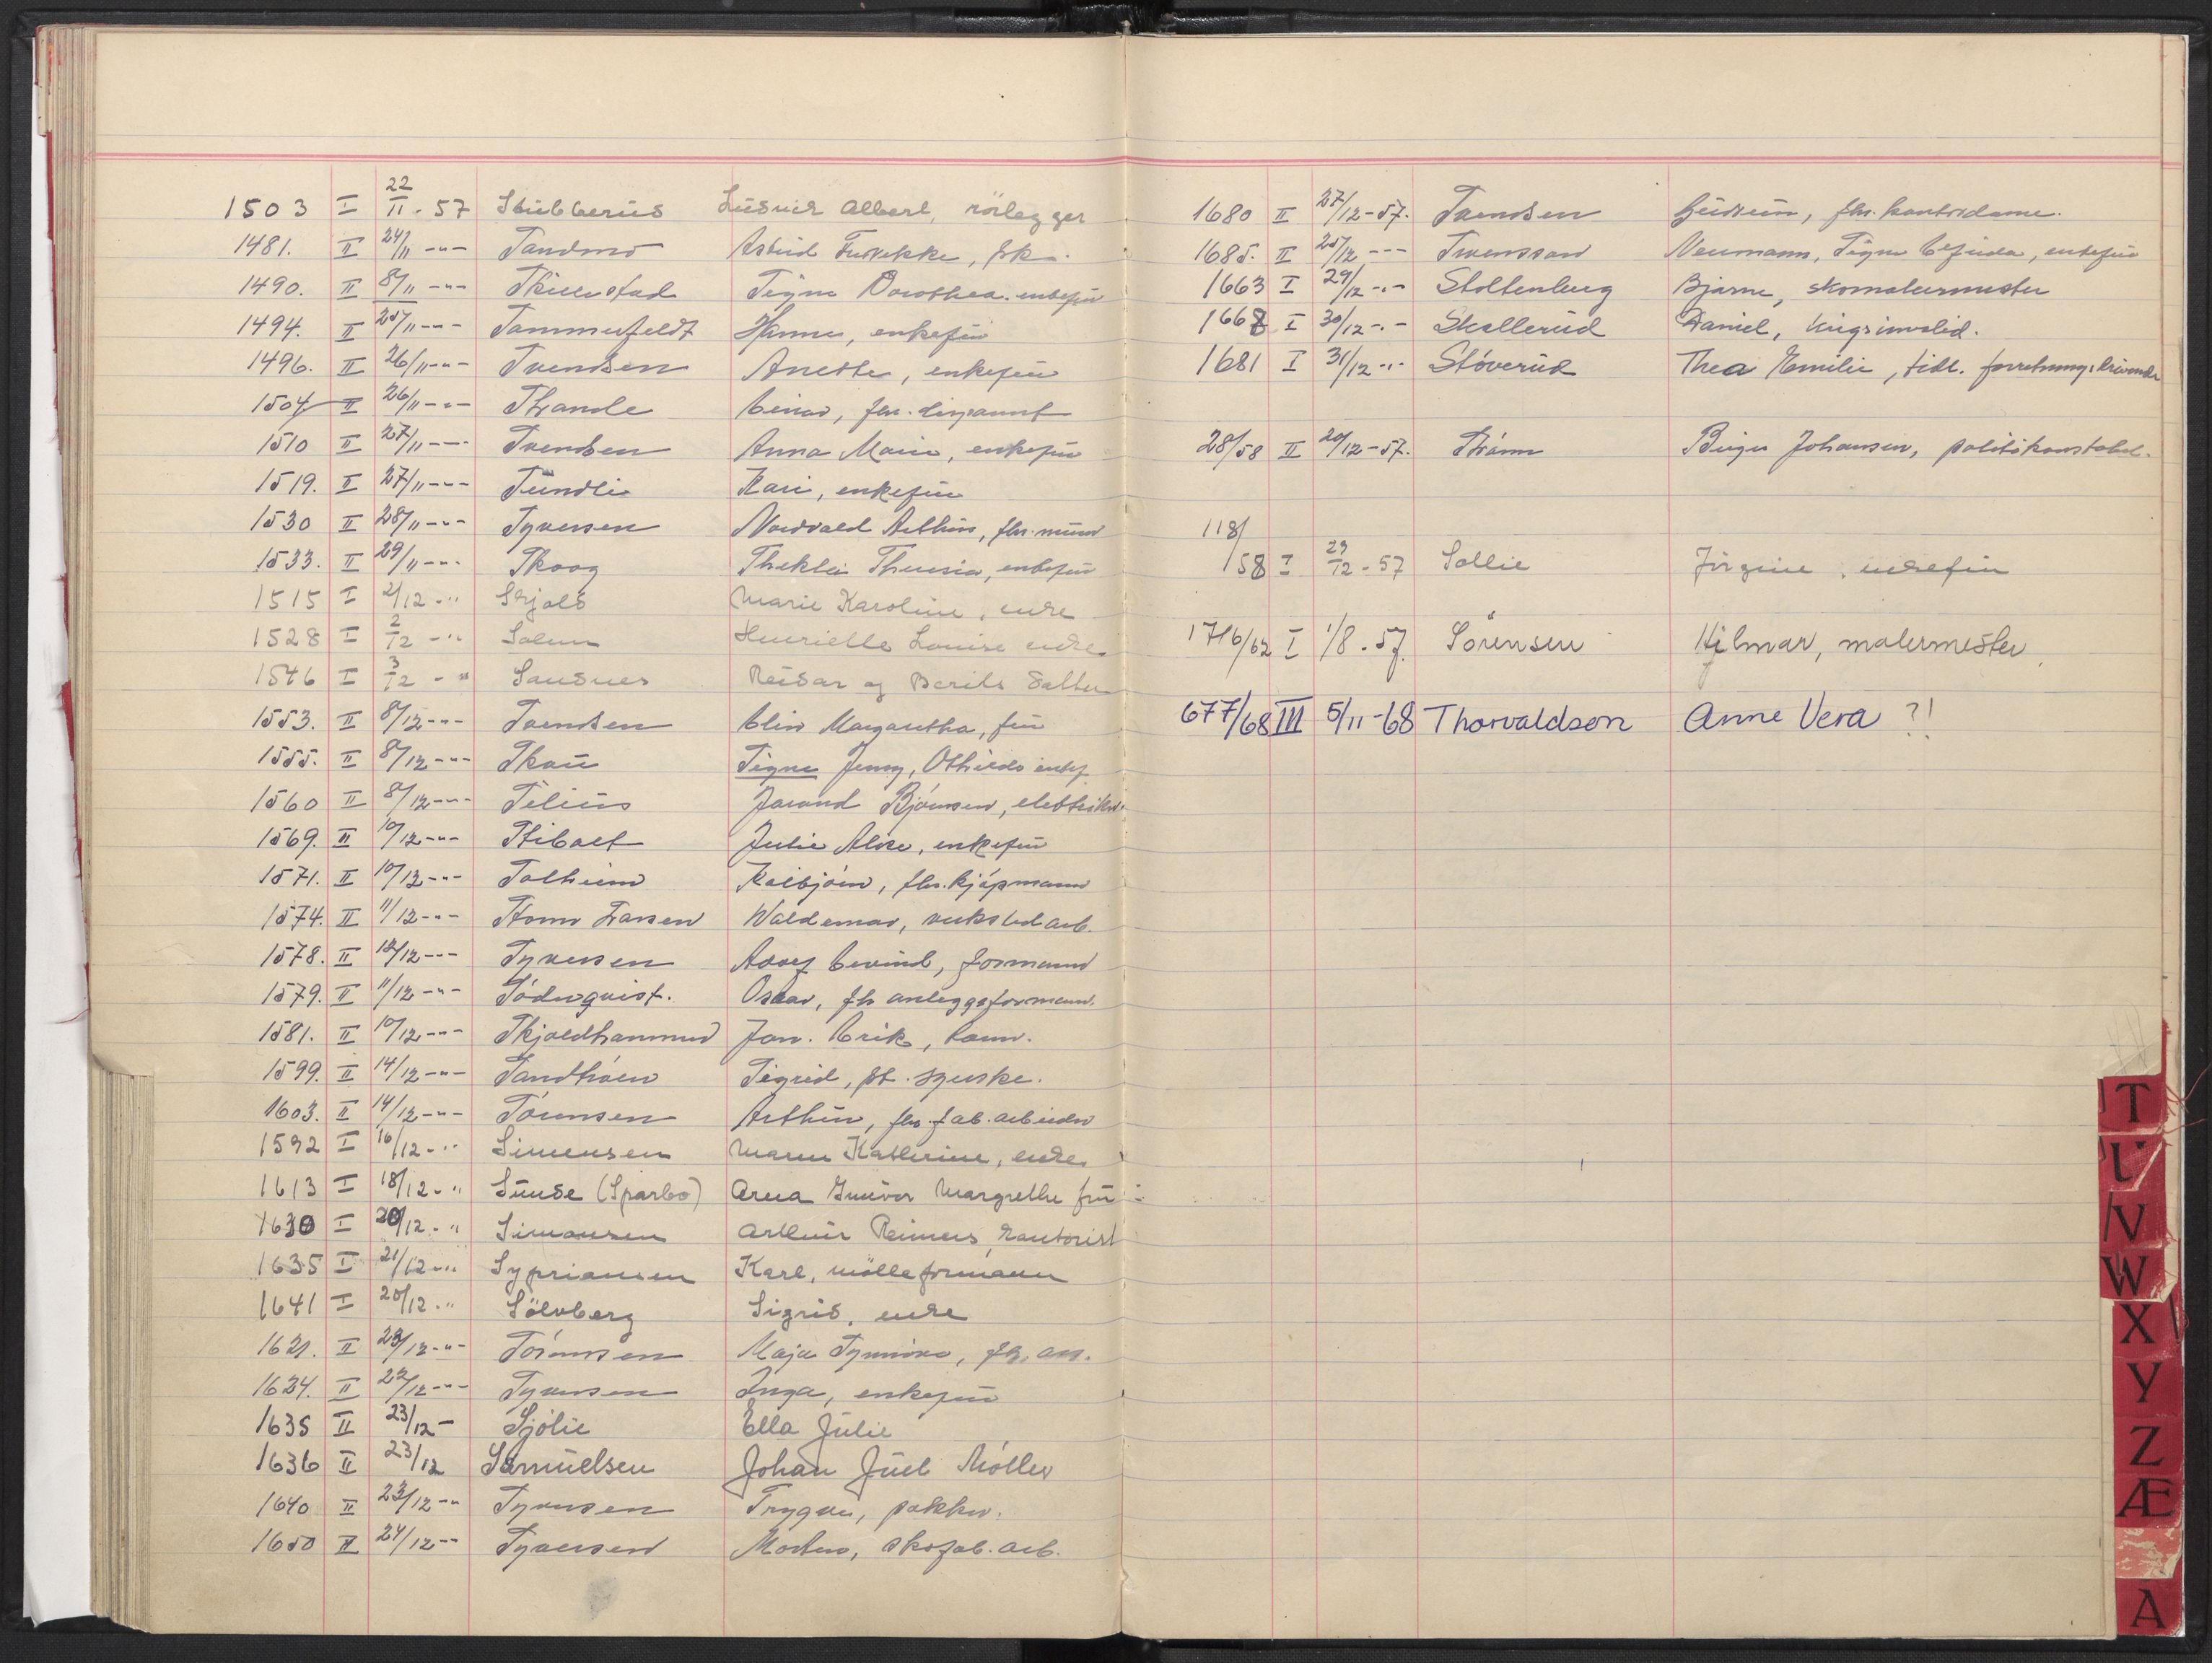 1503 I 22/11-57 Stubberud Ludvik Albert, rörlegger
1481. II 24/11 -"- Sandmo Astrid Furrekke, frk.
1490. II 8/11 -"- Skillestad Signe Dorothea. enkefrü
1494. II 25/11 -"- Sommerfeldt Hanna, enkefrü
1496. II 26/11 -"- Svendsen Anette, enkefrü
1504 II 26/11 -"- Strande Einar, fhv. disponent
1510 II 27/11 -"- Svendsen Anna Marie, enkefrü
1519. II 27/11 -"- Sündli Kari, enkefrü
1530 II 28/11 -"- Syversen Nordvald Arthür, fhv. mürer
1533. II 29/11 -"- Skoog Thekla Theresia, enkefrü
1515 I 2/12 -" Skjold Marie Karoline, enke
1528 I 2/12 -" Solum Henriette Louise enke
1546 I 3/12 -" Sandnes Reidar og Berits datter
1553. II 8/12 -"- Svendsen Elin Margaretha, frü
1555. II 8/12 -"- Skaü Signe Jenny, Othilde enkef.
1560 II 8/12 -"- Selius Jorand Bjørnsen, elektriker
1569. II 10/12 -"- Stibolt Julie Alice, enkefrü
1571. II 10/12 -"- Solheim Kolbjørn, fhv. kjøpmann
1574. II 11/12 -"- Storm Larsen Waldemar, verksted arb.
1578. II 12/12 -"- Syversen Adolf Eivind, formann
1579. II 11/12 -"- Söderquist. Oskar, fh anleggsformann.
1581. II 10/12 -"- Skjoldhammer Jan. Erik, barn.
1599. II 14/12 -"- Sandhäen Sigrid, fr. syerske.
1603. II 14/12 -"- Sørensen Arthür, fhv. fab. arbeider
1592 I 16/12 -" Simensen Maren Katherine, enke
1613 I 18/12 -" Sünde (Sparbo) Anna Günvor Margrethe frü
1630 I 20/12 -" Simonsen Arthür Reimers, kontorist
1635 I 21/12 -" Sypriansen Karl, mölleformann
1641 I 20/12 -" Sölvberg Sigrid, enke
1621. II 23/12 -"- Sørensen Maja Synnöve, fh. ass.
1624. II 22/12 -"- Syversen Inga, enkefrü
1635 II 23/12 - Sjølie Ella Jülie
1636 II 23/12 Samüelsen Johan Jüel Møller
1640 II 23/12 -" Syversen Trygve, pakker.
1650 II 24/12 -" Syversen Morten, skofab. arb.
1680 II 27/12-57. Svendsen Güdrün, fhv. kontordame.
1685. II 25/12 --- Svensson Neumann, Signe Elfrida, enkefrü
1663 I 29/12 -"- Stoltenberg Bjarne, skomakermester
1668 I 30/12 -"- Skallerüd Daniel, krigsinvalid.
1681 I 31/12 -"- Støverüd Thea Emilie, tidl. forretningsdrivende
28/58 II 20/12-57. Strøm Birger Johansen, politikonstabel.
118/
158 I 29/12-57 Sollie Jörgine, enkefrü
1716/62 I 1/8-57. Sörensen Hjlmar, malermester
677/68 III 5/11-68 Thorvaldson Anne Vera ?!
T
U
V
W
X
Y
Z
Æ
A